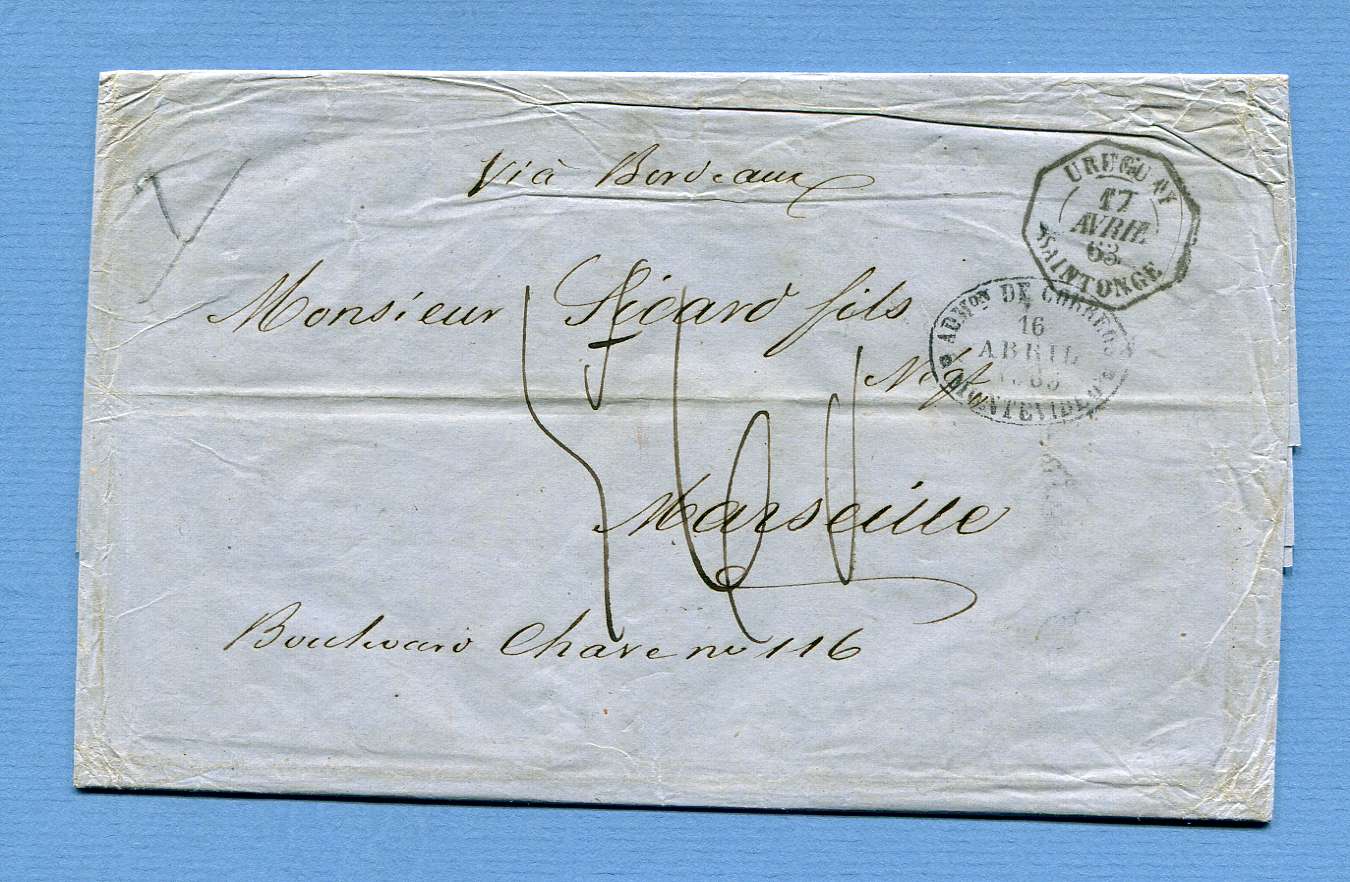 Vià Bordeaux
URUGUAY
17
AVRIL
63
SAINTONGE
Monsieur Sicard fils
ADMON DE CORREOS
16
ABRIL
1863
MONTEVIDEO
Negt
Marseille
Boulevard Chave no 116